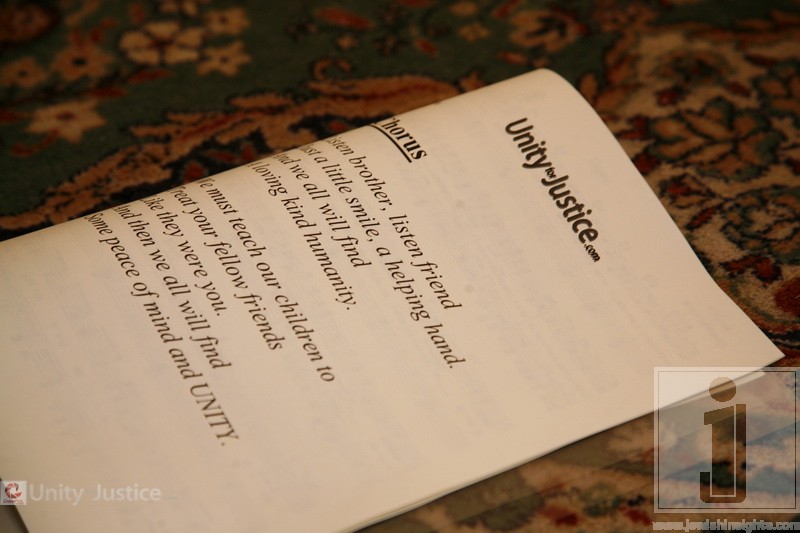 Unity for Justice.com
Chorus
brother, listen friend
a little smile, a helping hand.
we all will find
loving kind humanity.
must teach our children to
Treat your fellow friends
Like they were you.
And then we all will find
Some peace of mind and UNITY.
Unity Justice
j
www.jewishinsights.com